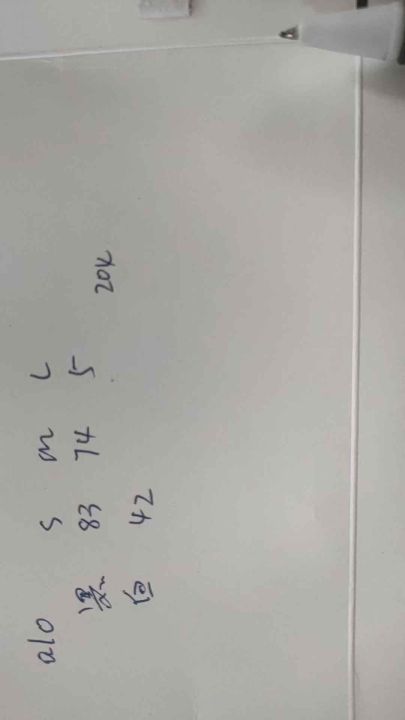 a10 S m L
83 74 5 20K
白 42